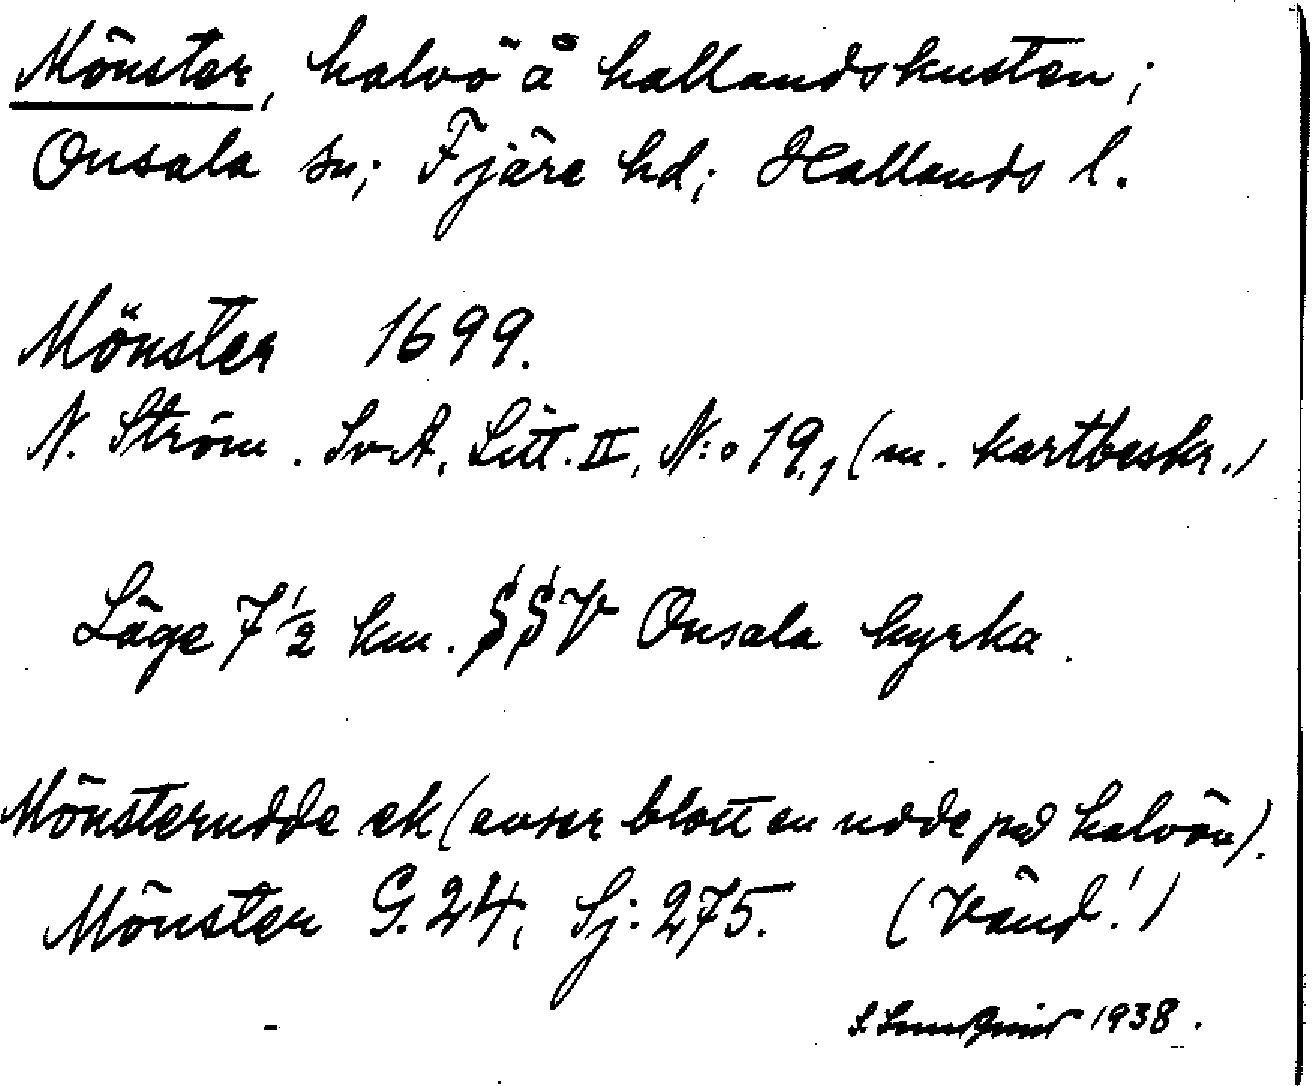 Mönster, halvö å hallandskusten;
Onsala sn; Fjäre hd; Hallands l.
Mönster 1699.
N. Ström. SvA, Litt. II, N:o 19,1 (m. kartbeskr.)
Läge 7 1/2 km. SSV Onsala kyrka.
Mönsterudde ek (avser blott en udde på halvön).
Mönster G. 24, Sj: 275. (Vänd!)
1938.